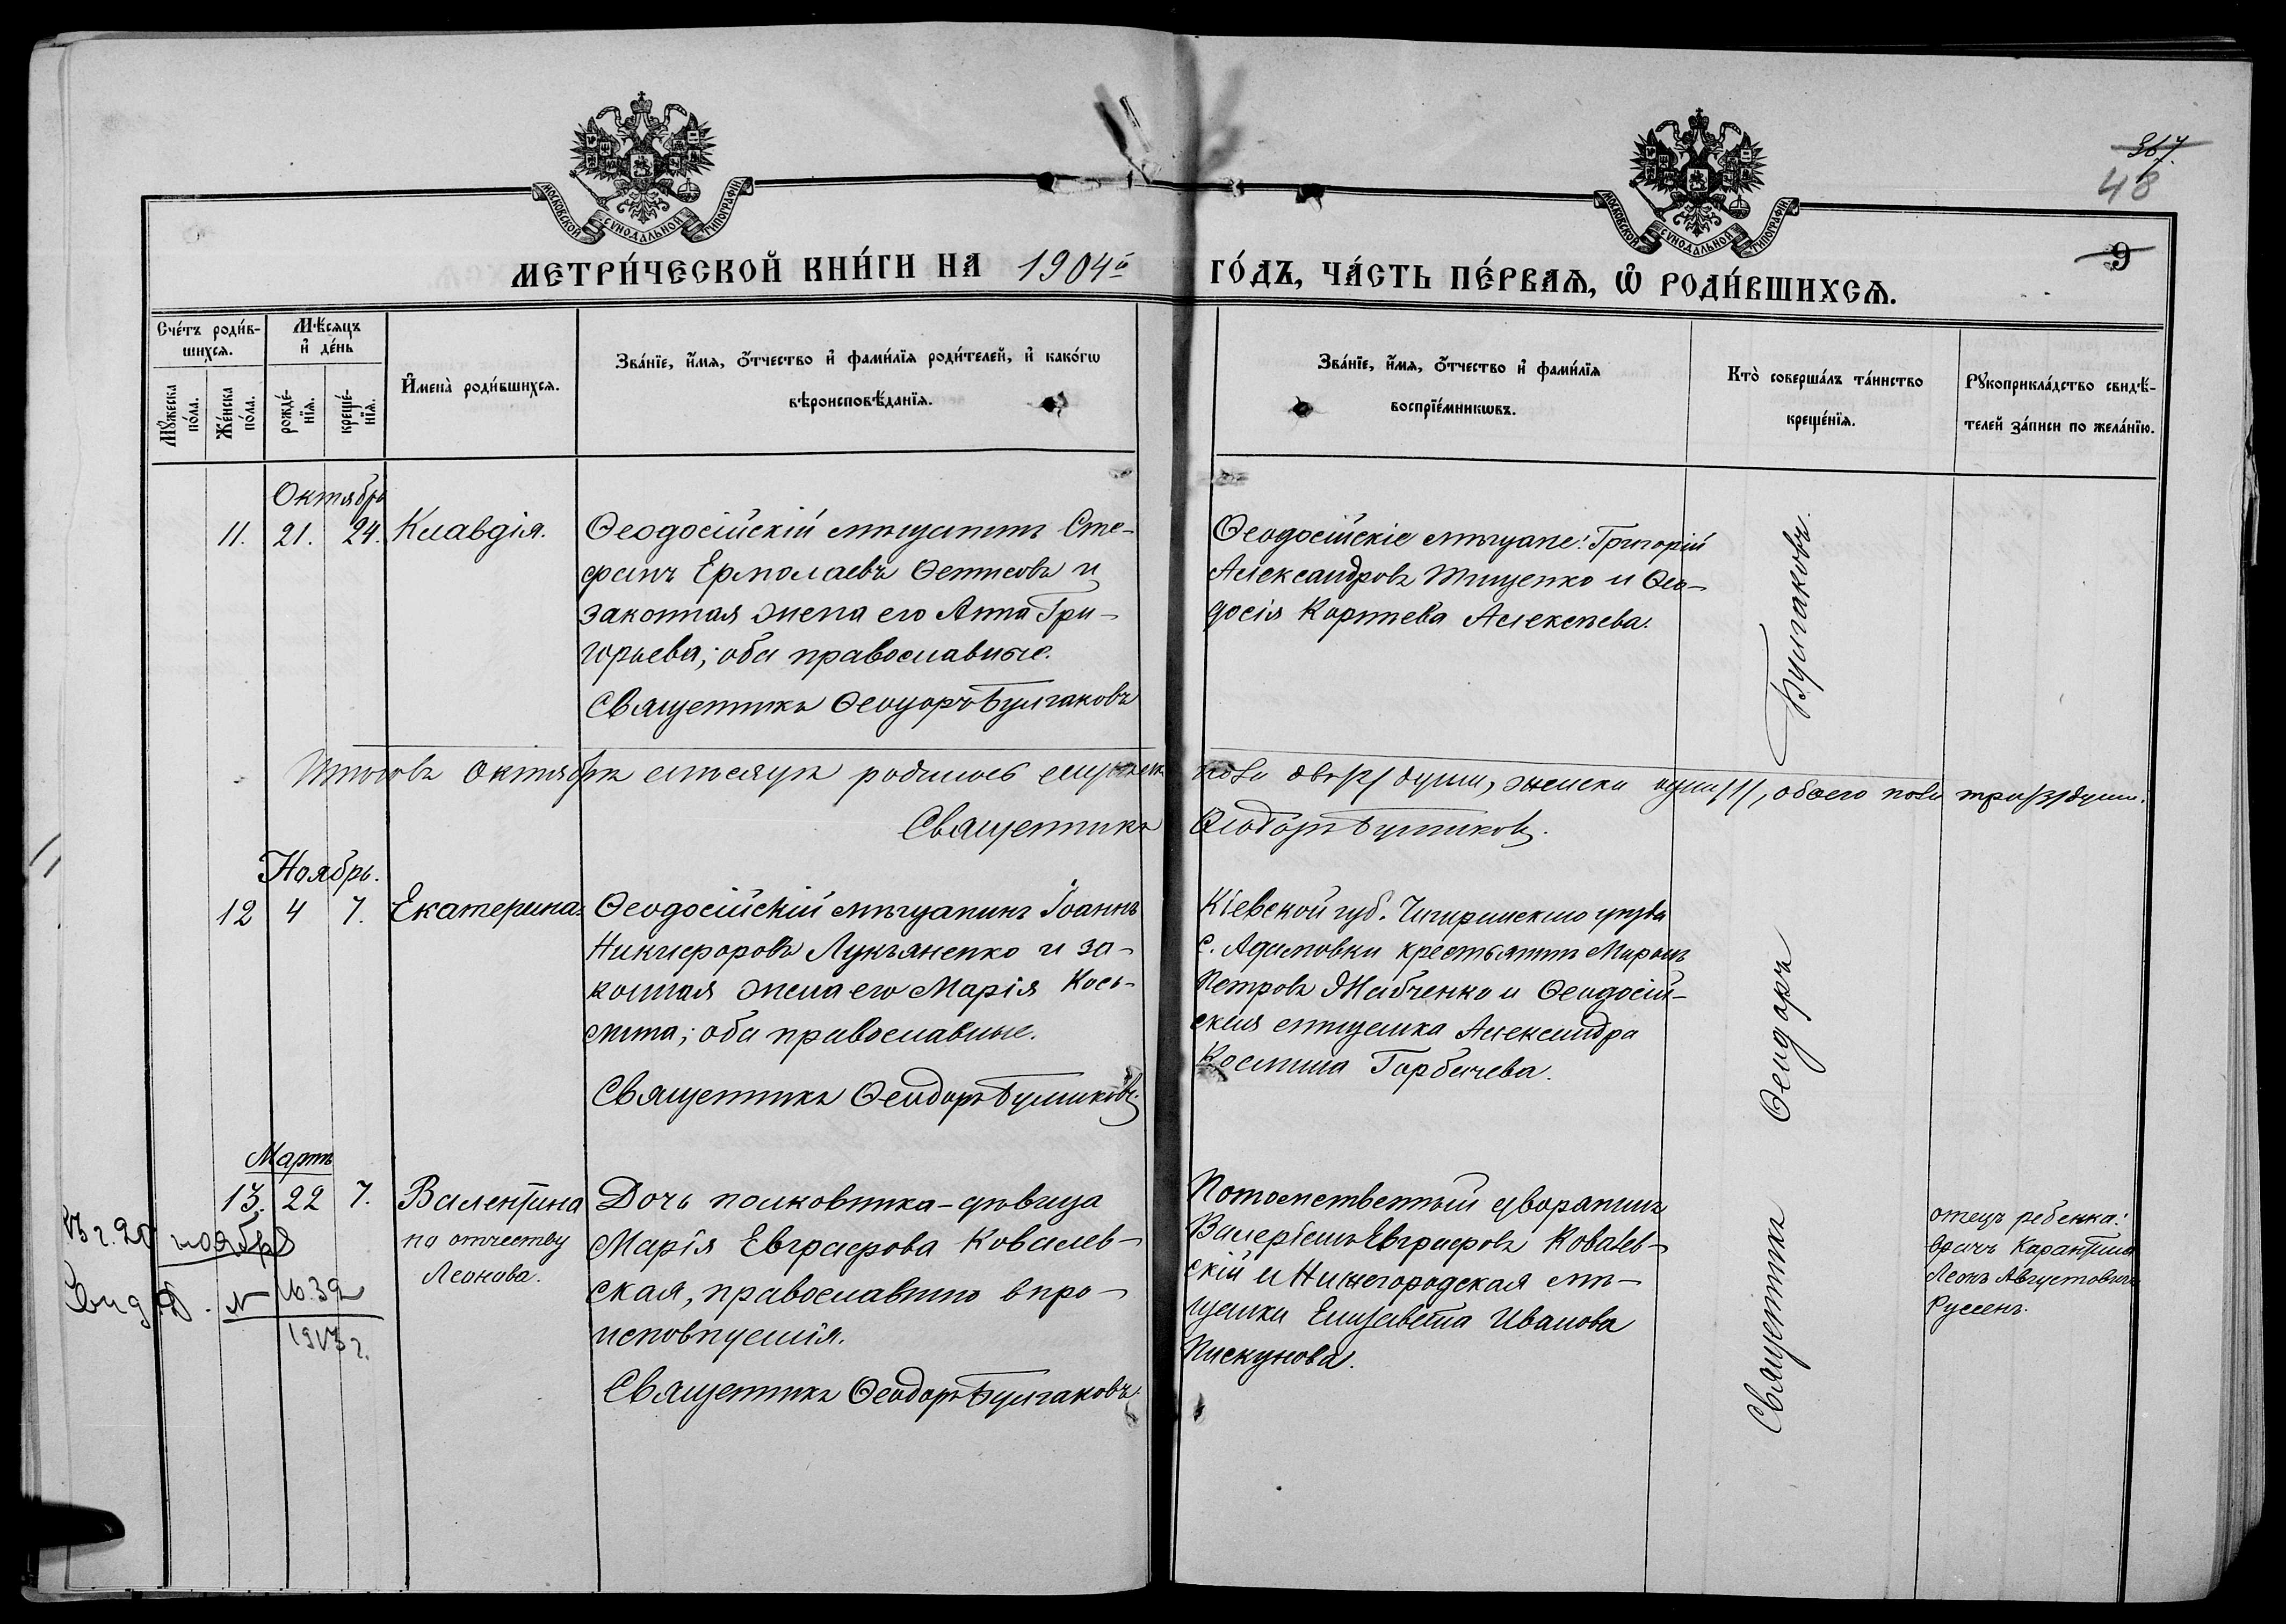 367.
48
9
МОСКОВСКОЙ СУНОДАЛЬНОЙ ТИПОГРАФІИ
МОСКОВСКОЙ СУНОДАЛЬНОЙ ТИПОГРАФІИ
МЕТРИ́ЧЕСКОЙ КНИ́ГИ НА 1904й ГО́ДЪ, ЧА́СТЬ ПЕ́РВАѦ, Ѡ҆ РОДИ́ВШИХСѦ.
Сче́тъ роди́в-
шихсѧ.
Мꙋжеска по́ла.
Же́нска по́ла.
Мѣ́сѧцъ
и҆ де́нь
рожде́-
нїѧ.
креще́-
нїѧ.
И҆мена̀ роди́вшихсѧ.
Зва́нїе, и҆́мѧ, ѻ҆́тчество и҆ фами́лїѧ роди́телей, и҆ како́гѡ
вѣроисповѣ́данїѧ.
Зва́нїе, и҆́мѧ, ѻ҆́тчество и҆ фами́лїѧ
воспрїе́мникѡвъ.
Кто̀ соверша́лъ та́инство
креще́нїѧ.
Рꙋкоприкла́дство свидѣ́-
телей за́писи по жела́нїю.
Октябрь
11. 21. 24. Клавдія.
Ѳеодосійскій мѣщанинъ Сте-
фанъ Ермолаевъ Ѳетисовъ и
законная жена его Анна Гри-
горьева; оба православные.
Священникъ Ѳеодоръ Булгаковъ
Ѳеодосійскіе мѣщане: Григорій
Александровъ Тищенко и Ѳео-
досія Корнѣева Алексѣева.
Итого въ Октябрѣ мѣсяцѣ родилось мужеска пола двѣ /2/ души, женска одна /1/, обоего пола три /3/ души.
Священникъ Ѳеодоръ Булгаковъ.
Ноябрь.
12 4 7. Екатерина.
Ѳеодосійскій мѣщанинъ Іоаннъ
Никифоровъ Лукьяненко и за-
конная жена его Марія Кось-
мина; оба православные.
Священникъ Ѳеодоръ Булгаковъ.
Кіевской губ. Чигиринскаго уѣзда
с. Адамовки крестьянинъ Миронъ
Петровъ Жабченко и Ѳеодосій-
ская мѣщанка Александра
Космина Горбачева.
Мартъ
13. 22 7. Валентина
по отчеству
Леонова.
Дочь полковника-дѣвица
Марія Евграфова Ковалев-
ская, православнаго вѣро-
исповѣданія.
Священникъ Ѳеодоръ Булгаковъ.
Потомственный дворянинъ
Валеріанъ Евграфовъ Ковалев-
скій и Нижегородская мѣ-
щанка Елизавета Иванова
Пискунова.
отецъ ребенка:
врачъ Карантина
Леонъ Августовичъ
Руссенъ.
Священникъ Ѳеодоръ Булгаковъ.
20 ноября
№
1913 г.